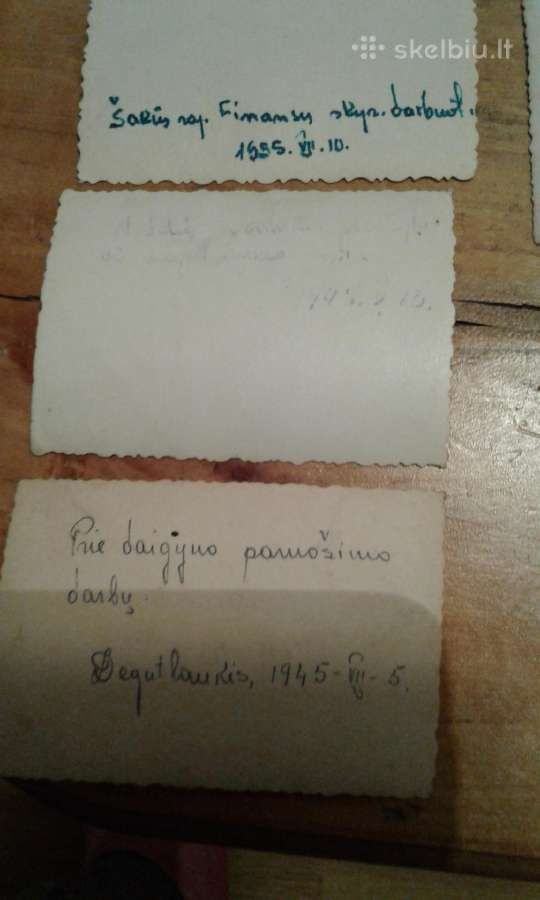 skelbiu.lt
Šakių raj. Finansų skyr. darbuot.
1955. VII. 10.
Prie daigyno paruošimo
darbų.
Degutlaukis, 1945-VII-5.